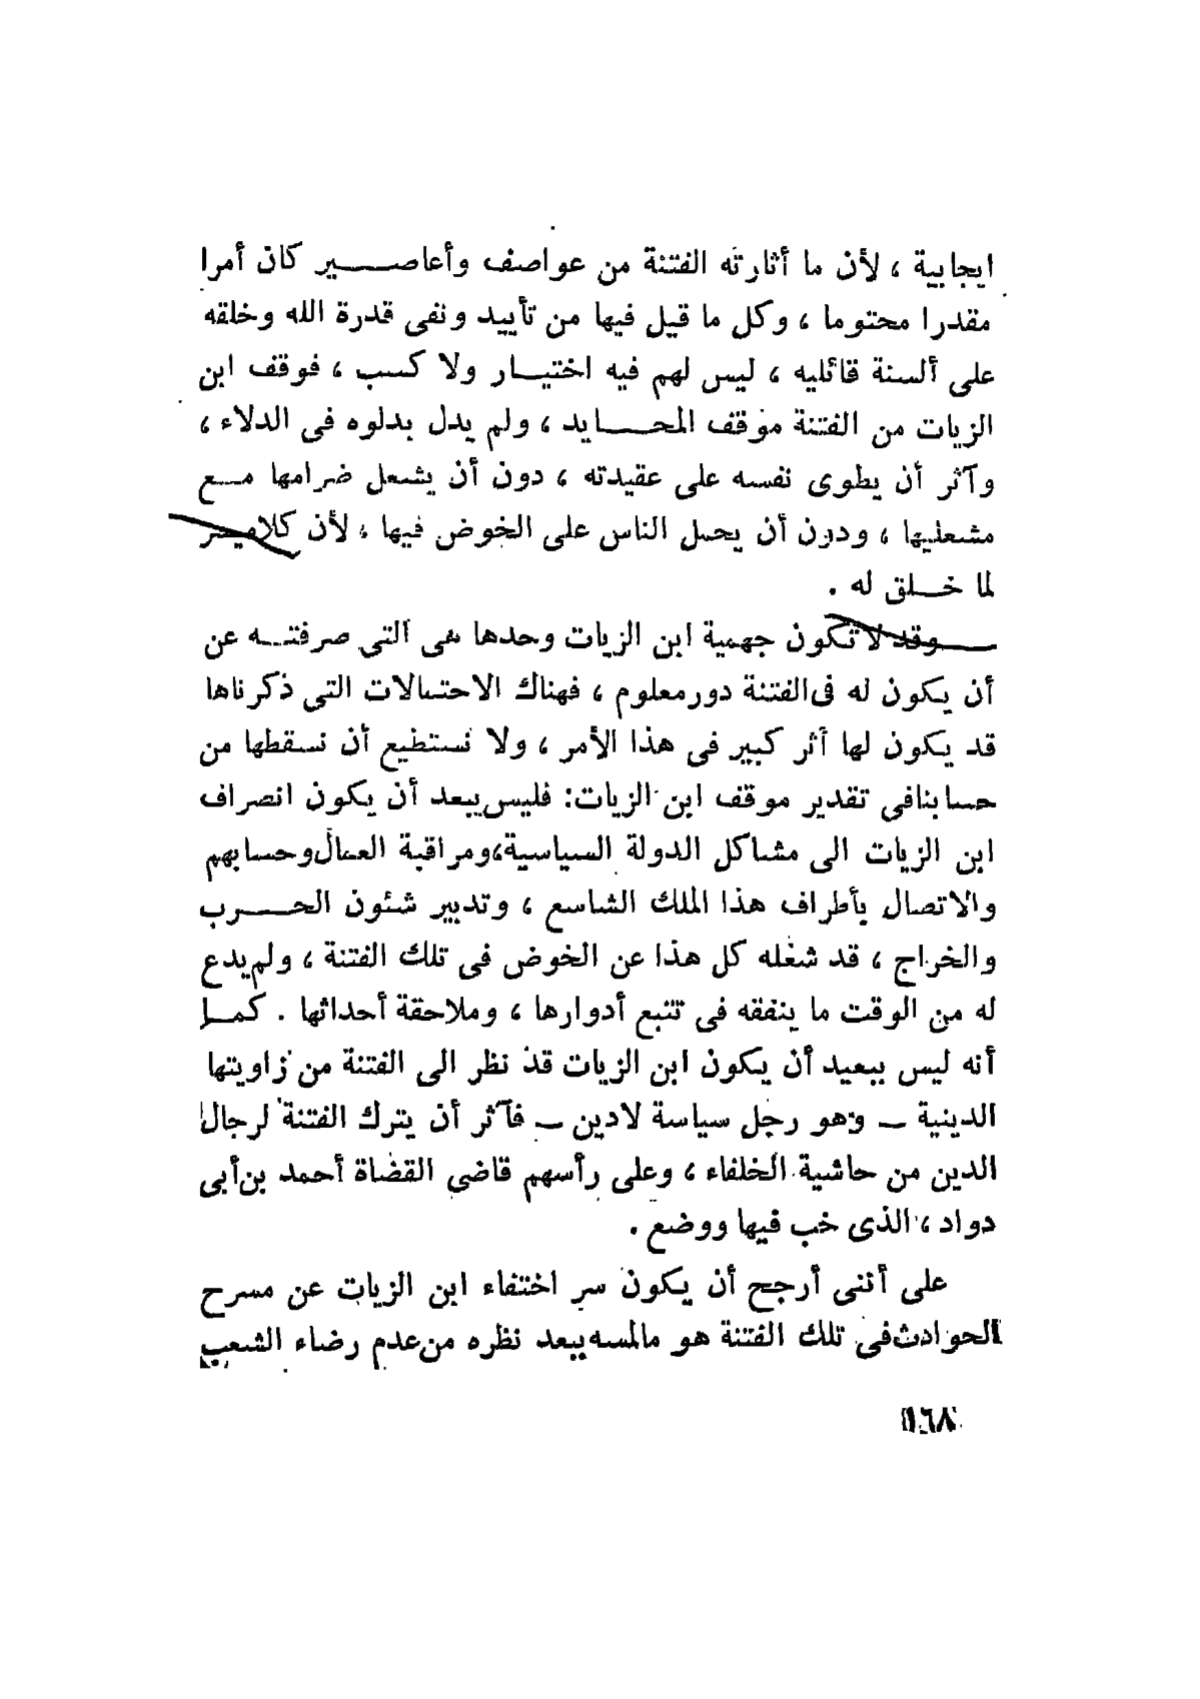 ايجابية ، لأن ما أثارته الفتنة من عواصف وأعاصير كان أمرا
مقدرا محتوما ، وكل ما قيل فيها من تأييد ونفى قدرة الله وخلقه
على ألسنة قائليه ، ليس لهم فيه اختيار ولا كسب ، فوقف ابن
الزيات من الفتنة موقف المحايد ، ولم يدل بدلوه فى الدلاء ،
وآثر أن يطوى نفسه على عقيدته ، دون أن يشعل ضرامها مع
مشعليها ، ودون أن يحمل الناس على الخوض فيها ، لأن كلا ميسر
لما خلق له .
وقد لا تكون جهمية ابن الزيات وحدها هى التى صرفته عن
أن يكون له فى الفتنة دور معلوم ، فهناك الاحتمالات التى ذكرناها
قد يكون لها أثر كبير فى هذا الأمر ، ولا نستطيع أن نسقطها من
حسابنا فى تقدير موقف ابن الزيات: فليس يبعد أن يكون انصراف
ابن الزيات الى مشاكل الدولة السياسية، ومراقبة العمال وحسابهم
والاتصال بأطراف هذا الملك الشاسع ، وتدبير شئون الحرب
والخراج ، قد شغله كل هذا عن الخوض فى تلك الفتنة ، ولم يدع
له من الوقت ما ينفقه فى تتبع أدوارها ، وملاحقة أحداثها . كما
أنه ليس ببعيد أن يكون ابن الزيات قد نظر الى الفتنة من زاويتها
الدينية — وهو رجل سياسة لا دين — فآثر أن يترك الفتنة لرجال
الدين من حاشية الخلفاء ، وعلى رأسهم قاضى القضاة أحمد بن أبى
دواد ، الذى خب فيها ووضع .
على أننى أرجح أن يكون سر اختفاء ابن الزيات عن مسرح
الحوادث فى تلك الفتنة هو ما لمسه ببعد نظره من عدم رضاء الشعب
١٦٨